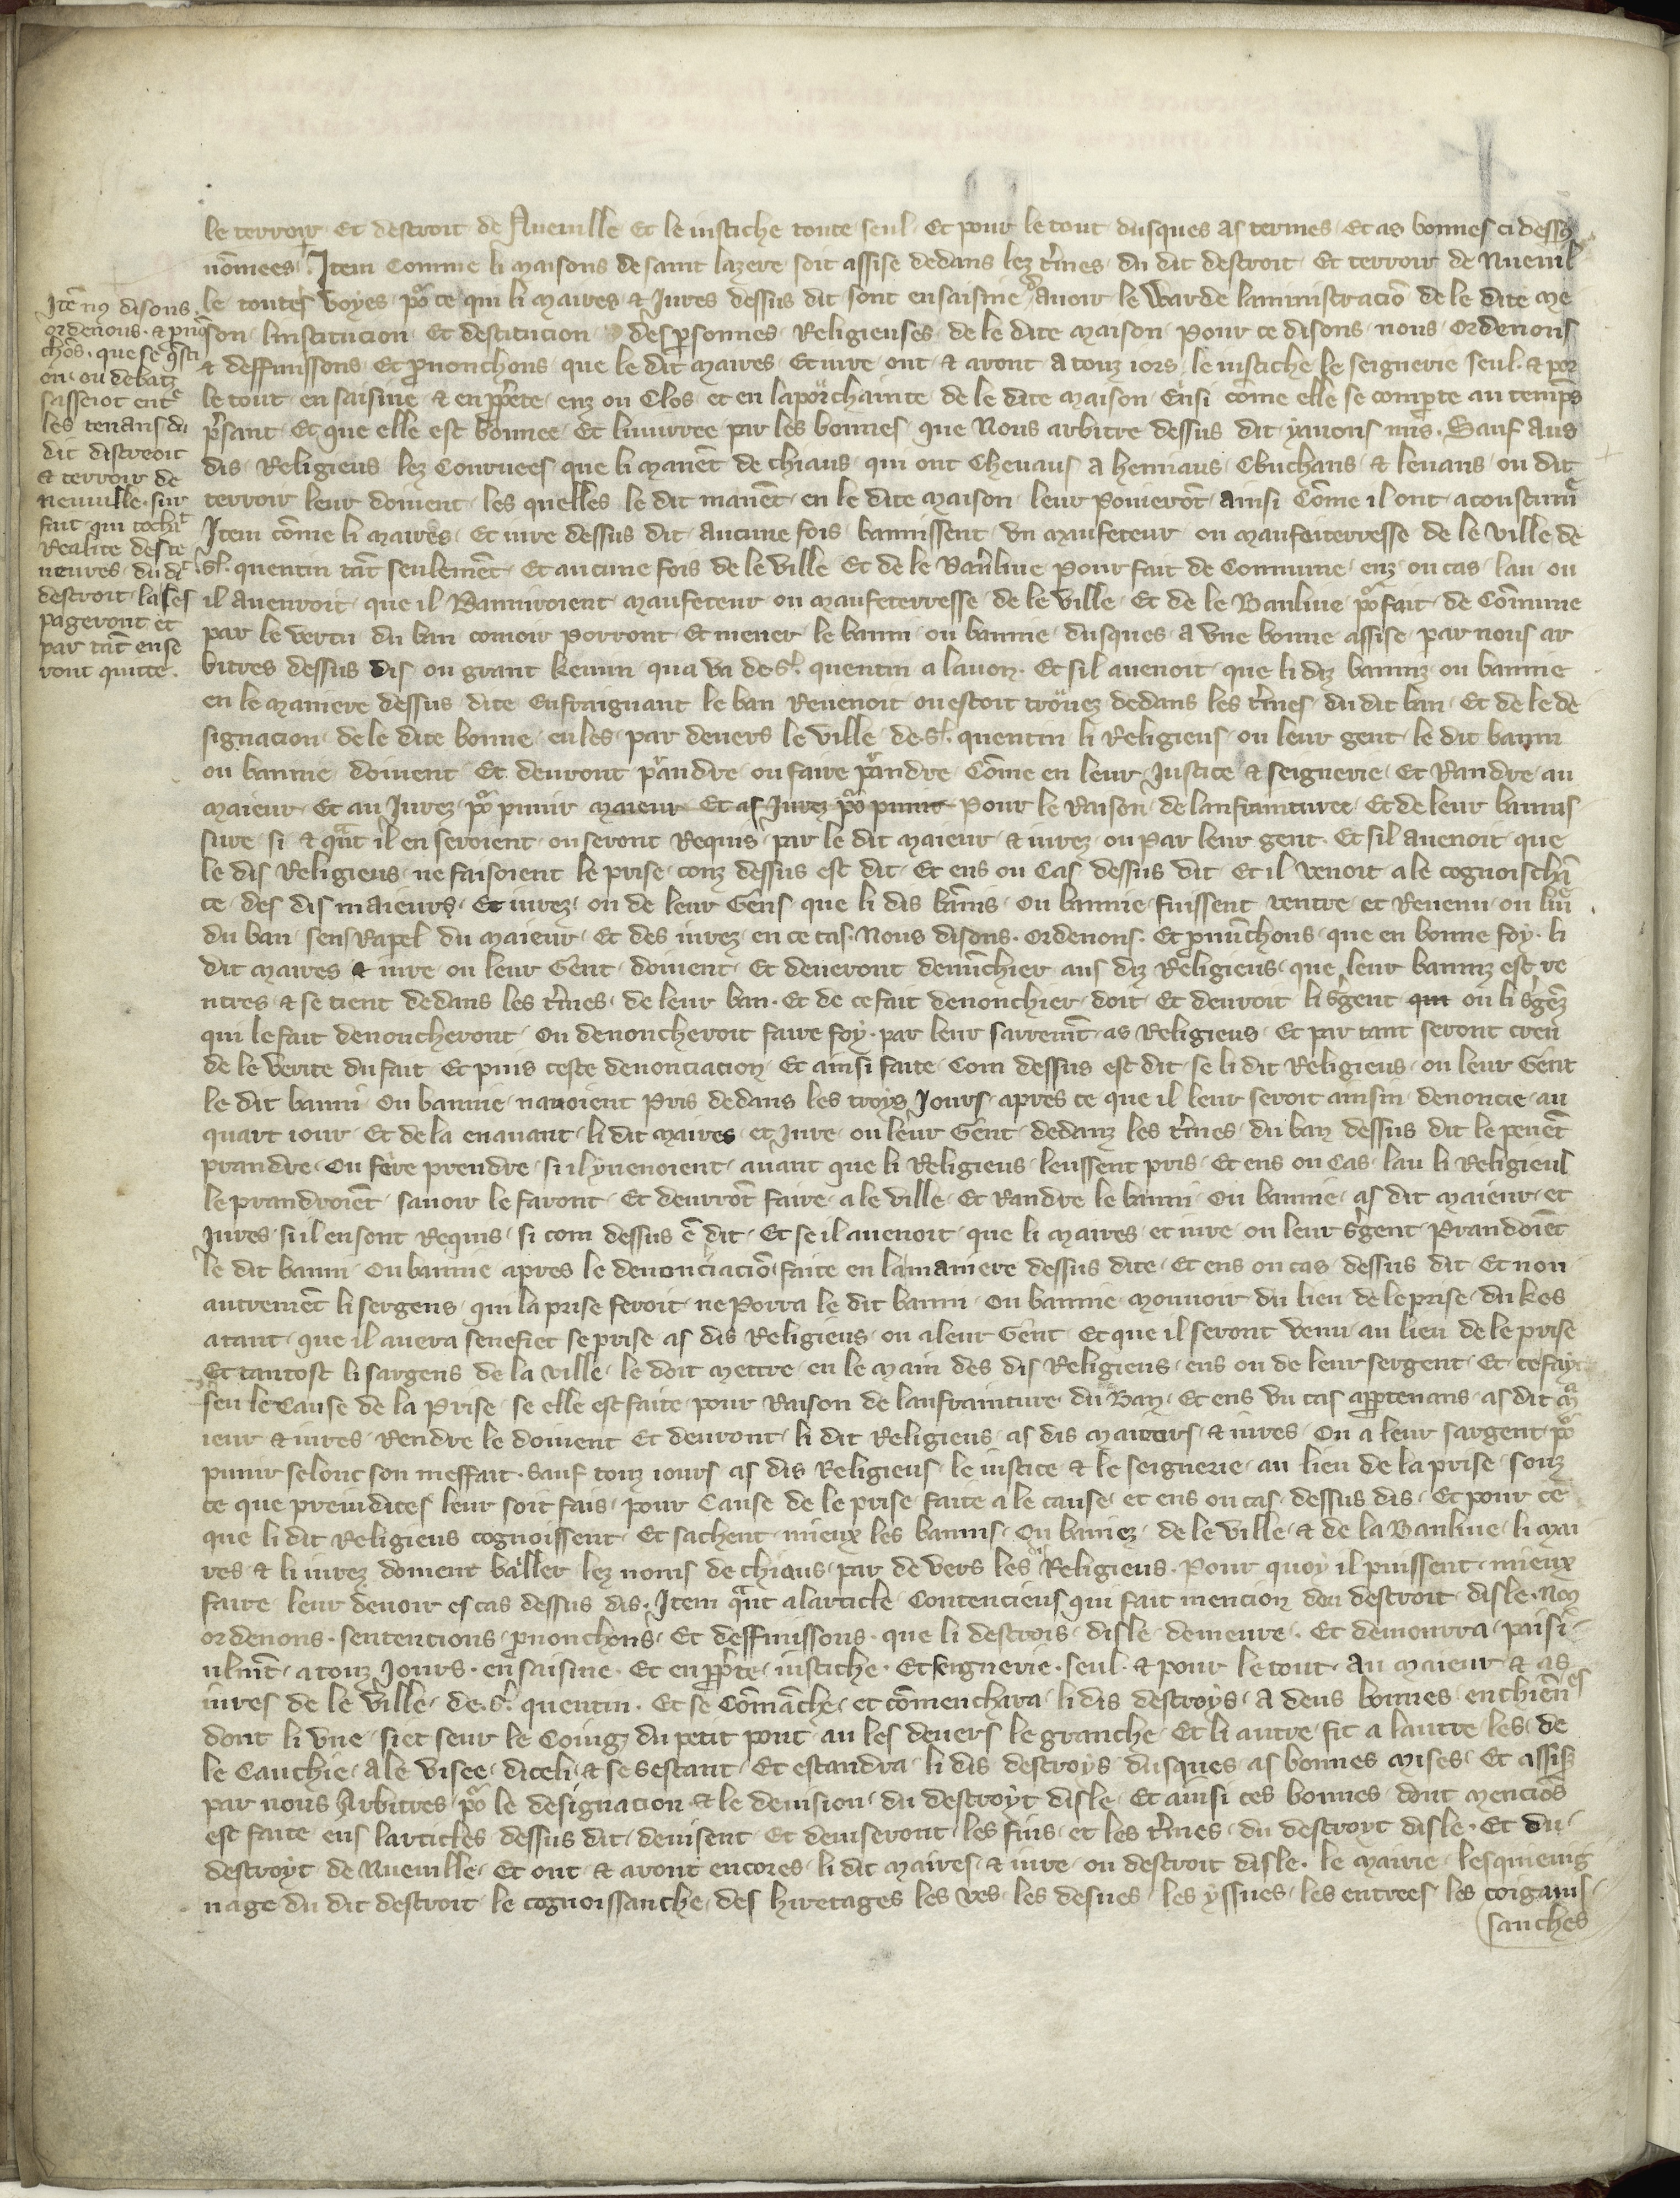 le terroir et destroit de Nueuille Et le iustiche toute seul Et pour le tout dusques as termes Et as bonnes ci dess9
nōmees Item Comme li maisons de saint lazere soit assise dedans lez t'mes du dit destroit Et terroir de Nueuil
le toutes voyes po' ce qui li maires & Jures dessus dit sont en saisine dauoir le Warde laministraciō de le dite me
son linstitucion Et destitucion des psonnes Religieuses de le dite maison pour ce disons nous ordenons
& deffinissons Et pnonchons que le dit maires Et iure ont & aront a touz iors le iustiche le seignerie seul & por
le tout en saisine & en pprete enz ou Clos et en la porchainte de le dite maison Ensi come elle se comporte au temps
psant Et que elle est bonnee Et liniurree par les bonnes que Nous arbitre dessus dit yauons mis. Sauf aus
dis Religieus lez Couruees que li manēt de chiaus qui ont Cheuaus a henniaus Couchans & leuans ou dit
terroir leur doiuent les quelles le dit manēt en le dite maison leur poierōt ainsi Cōme il ont acoustume
Item cōme li maires Et iure dessus dit aucune fois bannissent vn maufeteur ou maufeterresse de le ville de
St. quentin tāt seulemēt Et aucune fois de le ville Et de le Banliue pour fait de Commune enz ou cas lau ou
il auenroit que il Banniroient maufeteur ou maufeterresse de le ville Et de le Banliue po' fait de Cōmune
par le vertu du ban comoir porront Et mener le banni ou bannie dusques a vne bonne assise par nous ar
bitres dessus dis ou grant kemin qua va de St. quentin a lauon. Et sil auenoit que li diz banniz ou bannie
en le maniere dessus dite Enfraignant le ban Reuenoit ou estoit trouez dedans les t'mes du dit ban Et de le de
signacion de le dite bonne en les par deuers le ville de St. quentin li Religieus ou leur gent le dit banni
ou bannie doiuent Et deuront prandre ou faire prandre Cōme en leur Justice & seignerie Et Randre au
maieur Et au Jurez po' punir maieur Et as Jurez po' punir Pour le Raison de lanfrainturee Et de leur bannis
sure si & qāt il en seroient ou seront Requis par le dit maieur & iurez ou par leur gent Et sil auenoit que
le dis Religieus ne faisoient le prise comz dessus est dit Et ens ou Cas dessus dit Et il venoit a le cognoischā
ce des dis maieurs Et iurez ou de leur Gens que li dis bānis ou bannie fuissent rentre et Reuenu ou liu
du ban sens Rapel du maieur Et des iurez en ce cas. Nous disons. Ordenons. Et pnūchons que en bonne foy li
dit maires & iure ou leur Gent doiuent Et deueront denūchier aus diz Religieus que leur banniz est re
ntres & se tient dedans les t'mes de leur ban. Et de ce fait denonchier doit Et deuroit li s'gent qui ou li s'gēz
qui le fait denoncheront ou denoncheroit faire foy par leur sarremt as Religieus Et par tant seront creu
de le verite du fait Et puis ceste denonciacion Et ainsi faite Com dessus est dit se li dit Religieus ou leur Gent
le dit banni ou bannie nauoient pris dedans les troys Jours apres ce que il leur seroit ainsin denoncie au
quart iour Et de la enauant li dit maires et Jure ou leur Gent dedanz les t'mes du ban dessus dit le peuēt
prandre ou fere prendre si il yuenoient auant que li Religieus leussent pris Et ens ou Cas lau li Religieus
le prandroiēt sauoir le faront Et deurrōt faire a le ville Et Randre le banni ou bannie as dit maieur et
Jures si il en sont Requis si com dessus ē dit Et se il auenoit que li maires et iure ou leur s'gent Prandoiēt
le dit banni ou bannie apres le denonciaciō faite en la maniere dessus dite Et ens ou cas dessus dit Et non
autremēt li sergens qui la prise feroit ne porra le dit banni ou bannie mouuoir du lieu de le prise dukes
atant que il auera senefiet se prise as dis Religieus ou a leur Gent Et que il seront venu au lieu de le prise
Et tantost li sargens de la ville le doit mettre en le main des dis Religieus ens ou de leur sergent Et ce fayt
seu le Cause de la Prise se elle est faite pour Raison de lanfrainture du Ban Et ens vn cas appartenans as dit ma
ieur & iures Rendre le doiuent Et deuront li dit Religieus as dis maieurs & iures ou a leur sargent po'
punir selonc son meffait. Sauf touz iours as dis Religieus le iustice & le seignerie au lieu de la prise sonz
ce que preiudices leur soit fais pour Cause de le prise faite a le cause et ens ou cas dessus dis Et pour ce
que li dit Religieus cognoissent Et sachent mieux les bannis ou baniez de le ville & de la Banliue li mai
res & li iurez doiuent baller lez noms de chiaus par de vers les Religieus. Pour quoy il puissent mieux
faire leur deuoir es cas dessus dis. Item qāt a larticle Contencieus qui fait mencion dou destroit disle. No9
ordenons. sentencions pnonchons Et deffinissons. que li destrois disle demeure. Et demourra paisi
ulmt a touz Jours. en saisine. Et en pprete iustiche. Et seignerie. seul & pour le tout au maieur & as
iures de le ville de St. quentin. Et se Cōmāche et cōmenchira li dis destroys a deus bonnes enchien es
dont li vne siet seur le Coing du petit pont au les deuers le granche Et li autre sit a lautre les de
le Cauchie a le visee diceli & se sestant Et estandra li dis destroys dusques as bonnes mises Et assis
par nous Arbitres po' le designacion & le deuision du destroyt disle Et ainsi ces bonnes dont mencios
est faite ens larticles dessus dit deuisent Et deuiseront les fins et les t'mes du destroyt disle. Et du
destroyt de Nueuille Et ont & aront encores li dit maires & iure ou destroit disle. le mairie lesquieuig
nage du dit destroit le cognoissanche des hiretages les ves les desues les yssues les entrees les coigans
sanches
Itē no9 disons
ordenons. & pnō
chōs. que se qsti
on ou debatz
sasseiot entē
les tenans du
dit discroit
& terroir de
neuuille. sur
fait qui tochāt
Realite des te
neures du dt
destroit la ses
pageront et
par tāt en se
ront quitte.